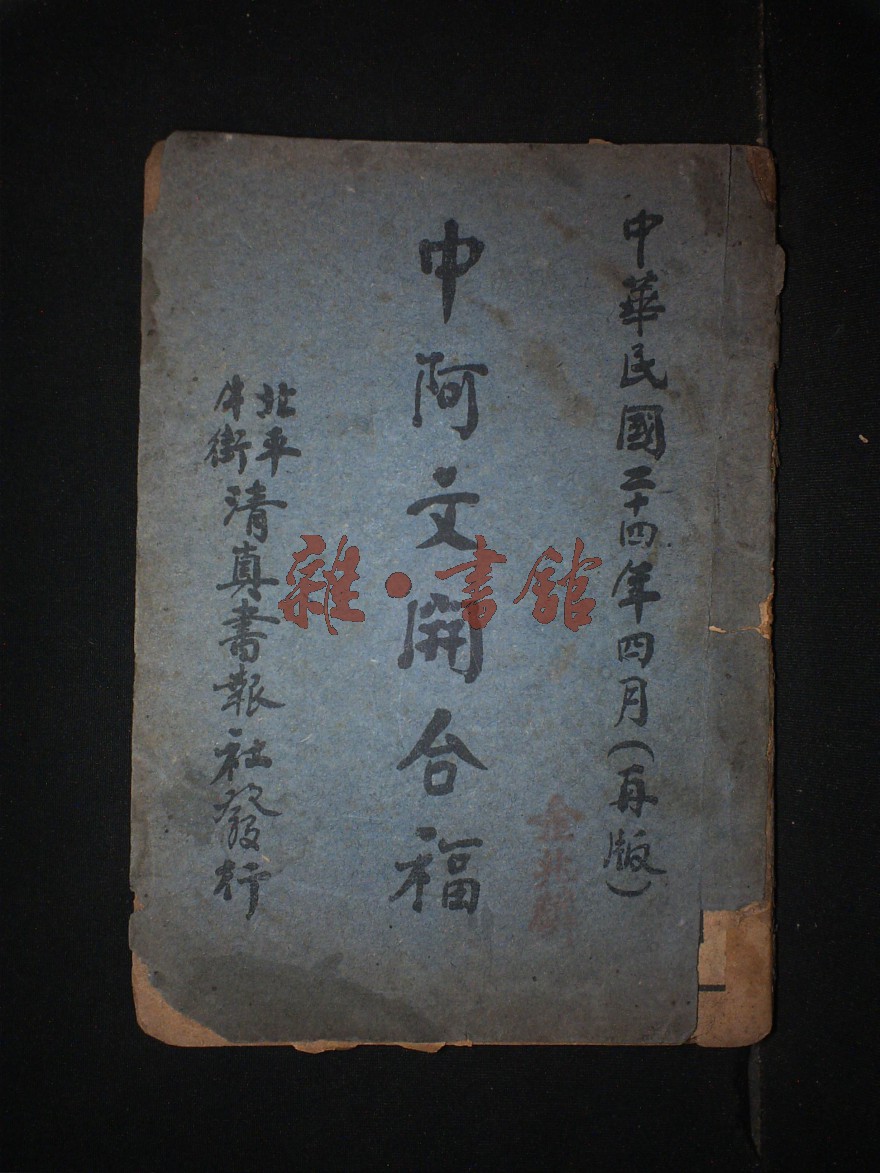 中華民國二十四年四月(再版)
中阿文開台福
北平
牛街
清真書報社發行
雜·書館